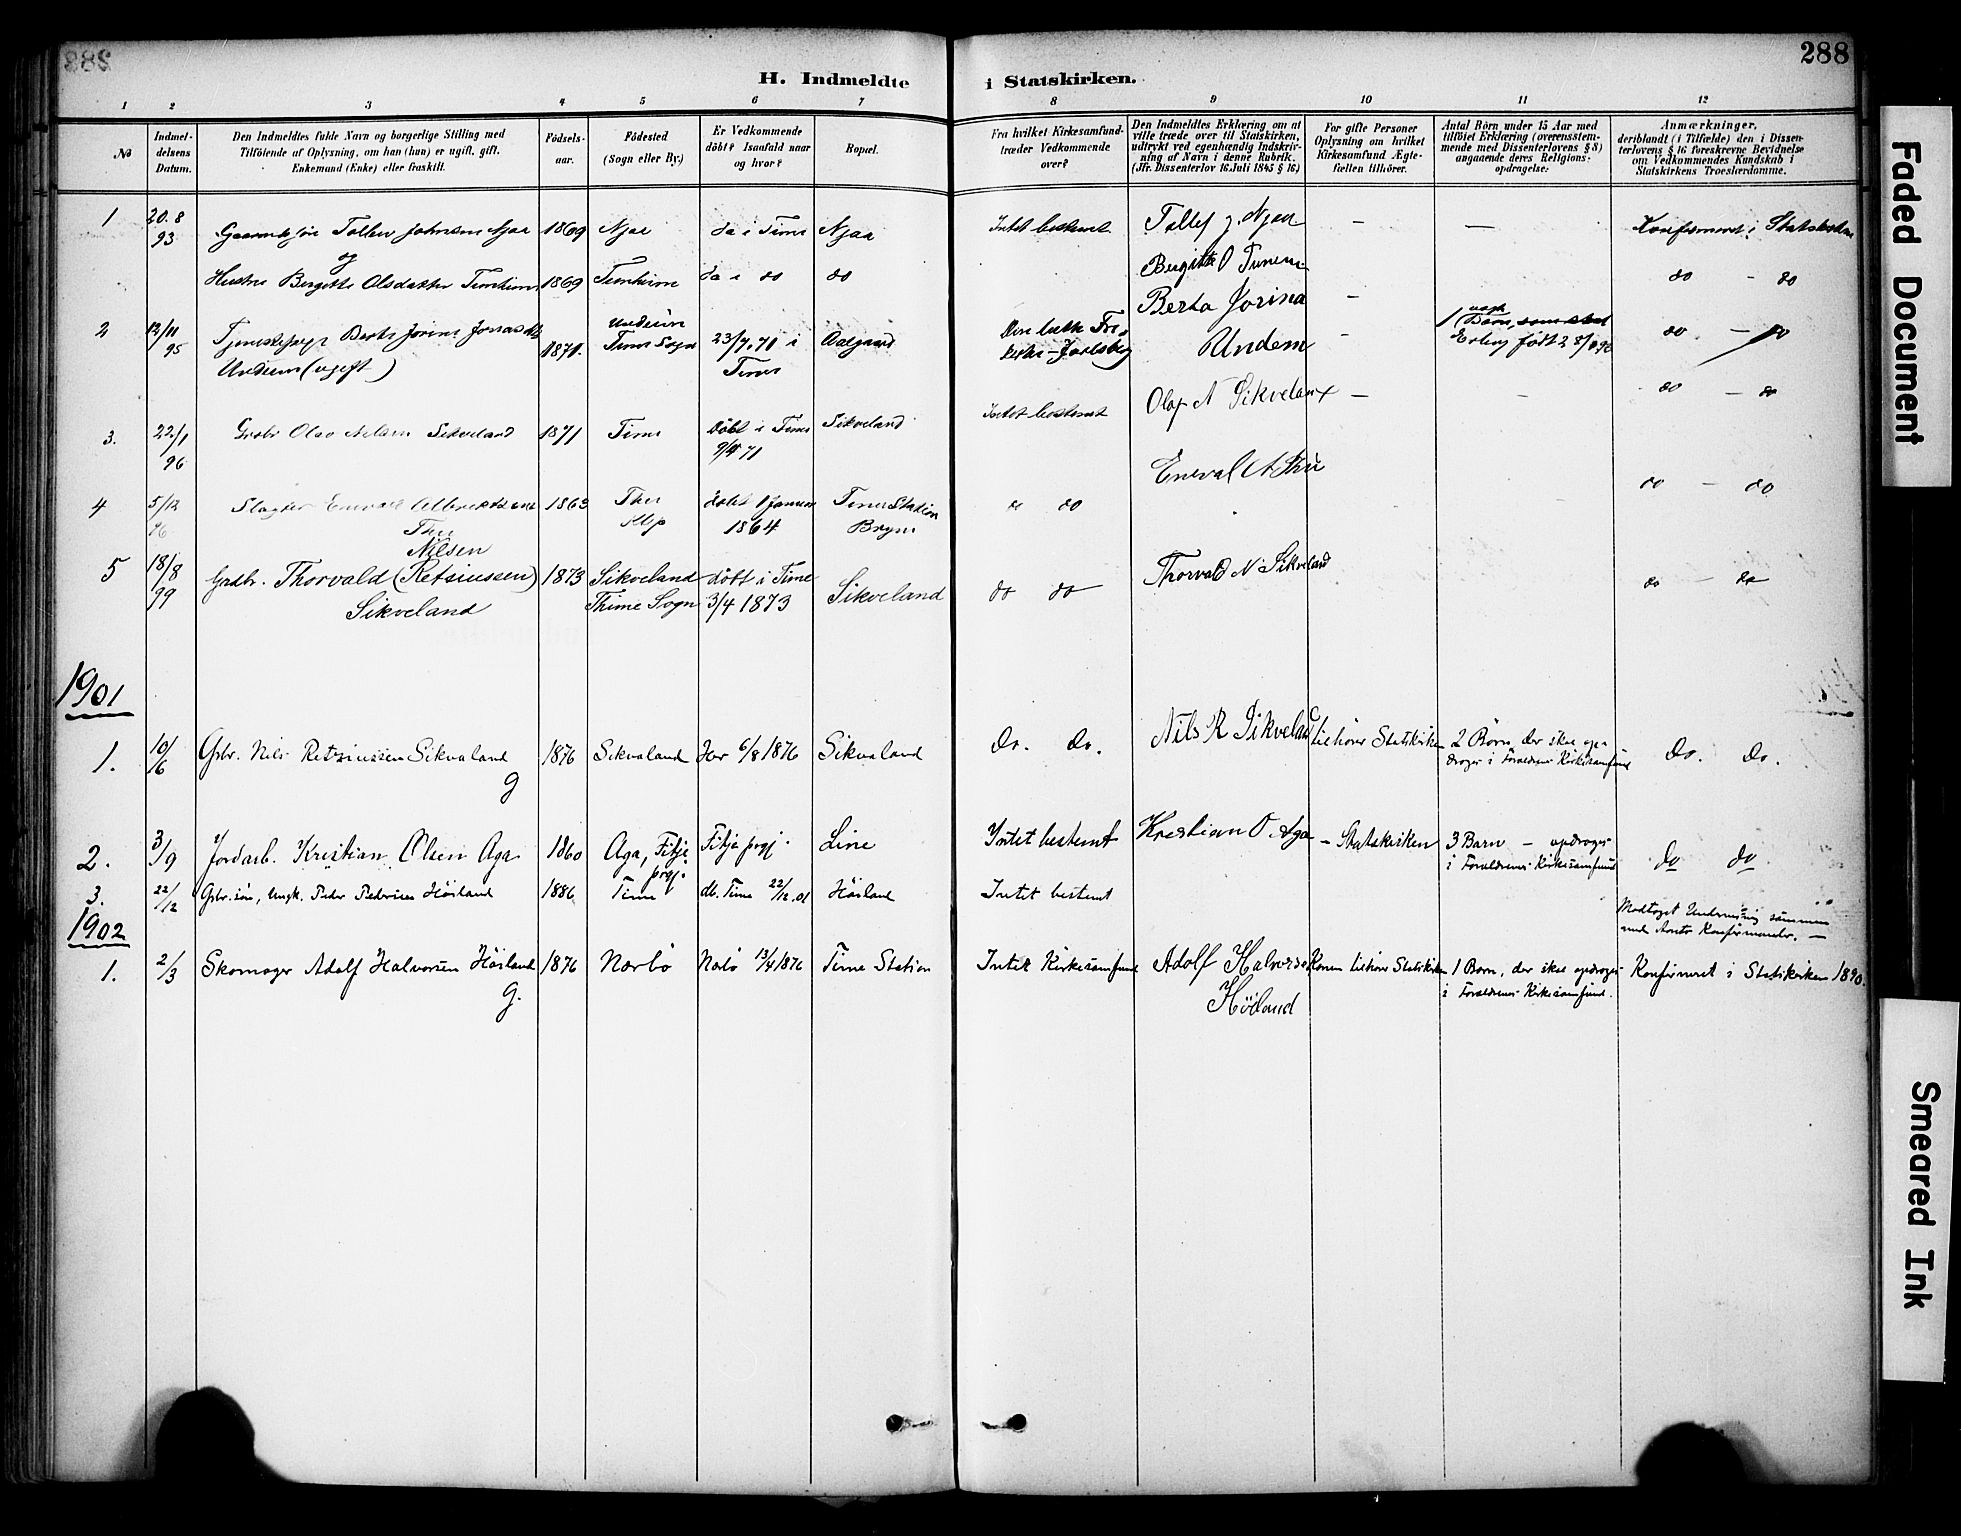 288
H. Indmeldte i Statskirken.
1 2 3 4 5 6 7 8 9 10 11 12
No
Indmeldelsens Datum.
Den Indmeldtes fulde Navn og borgerlige Stilling med
Tilföiende af Oplysning, om han (hun) er ugift, gift,
Enkemand (Enke) eller fraskilt.
Födselsaar.
Födested
(Sogn eller By.)
Er Vedkommende
döbt? Isaafald naar
og hvor?
Bopæl.
Fra hvilket Kirkesamfund
træder Vedkommende
over?
Den Indmeldtes Erklæring om at
ville træde over til Statskirken,
udtrykt ved egenhændig Indskriv-
ning af Navn i denne Rubrik.
(Jfr. Dissenterlov 16. Juli 1845 § 16)
For gifte Personer
Oplysning om hvilket
Kirkesamfund Ægte-
fællen tilhörer.
Antal Börn under 15 Aar med
tilföiet Erklæring (overensstem-
mende med Dissenterlovens § 8)
angaaende deres Religions-
opdragelse:
Anmærkninger,
deriblandt (i Tilfælde) den i Dissen-
terlovens § 16 foreskrevne Bevidnelse
om Vedkommendes Kundskab i
Statskirkens Troeslærdomme.
1 20.8 93 Tollev Johnsen Njaa 1869 Njaa da i Time Njaa Intet bestemt Tollef J. Njaa — — Konfirmeret i Statskirken
og
Hustru Bergitte Olsdatter Tunheim 1869 Tunheim da i do do Bergitte O Tunem do - do
2 12/11 95 Berta Jorine Jonasdtr
Undem (ugift) 1871. Undem Time Sogn 23/7.71 i Time Aalgaard Den luth Frikirke - Jarlsberg Berta Jorina Undem — 1 født 2 do — do
3. 22/1 96 Grdbr Olav Nilsen Sikveland 1871 Time Döbt i Time 71 Sikveland Intet bestemt Olaf N Sikveland — — do — do
4 5/12 96 Slagter Enevald Albrektsen
Thu 1863 Thu Klp döbt Januar 1864 Time Station Bryne do Eneval A Thu do — do
5 18/8 99 Grdbr. Thorvald Nilsen (Retsiussen)
Sikveland 1873 Sikveland Thime Sogn döbt i Time 3/4 1873 Sikveland do do Thorvald N Sikveland do — do
1901
1. 10/6 Gbr. Nils Retsiussen Sikvaland
g 1876 Sikvaland Her 6/8 1876 Sikvaland Do. Do. Nils R Sikveland tilhører Statskirken 2 Børn, der skal op-
drages i Forældrenes Kirkesamfund Do. Do.
2. 3/9 Jordarb. Kristian Olsen Aga 1860 Aga, Fitje prgj. Fitje prgj. Line Intet bestemt Krestian O. Aga — Statskirken 3 Barn — opdrages
i Forældrenes Kirkesamfund do do
3. 22/12 Gbr.søn, Ungk. Peder Pedersen Höiland 1886 Time db. Time 22/12.01 Höiland Intet bestemt Modtaget Undervisning sammen
med Aarets Konfirmander. —
1902
1. 2/3 Skomager Adolf Halvorsen Höiland
g. 1876 Nærbö Nærbö 13/4 1876 Time Station Intet Kirkesamfund Adolf Halvorsen
Höiland Konen tilhører Statskirken 1 Barn, der skal opdrages
i Forældrenes Kirkesamfund. Konfirmeret i Statskirken 1890.
Faded Document
Smeared Ink